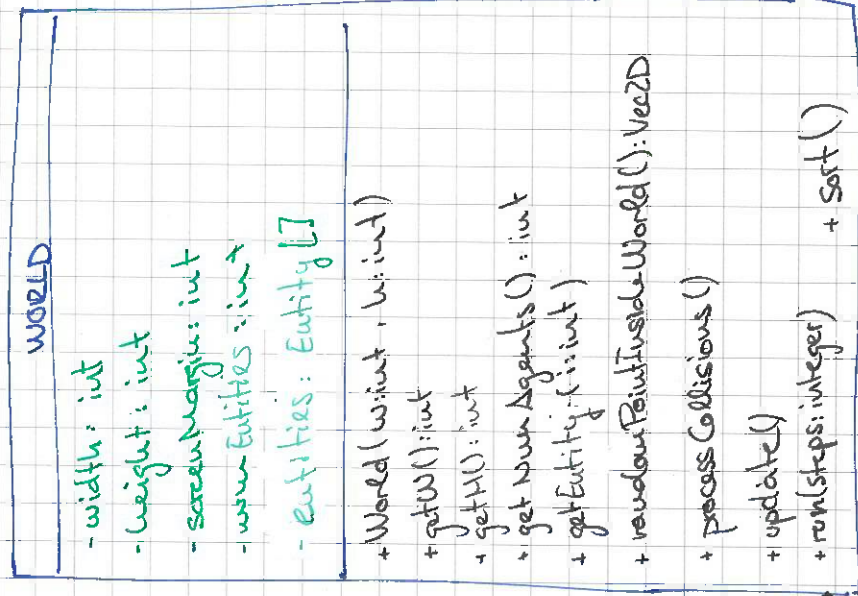 WORLD
- width: int
- height: int
- screenMargin: int
- numEntities: int
- entities: Entity []
+ World (w:int, h:int)
+ getW(): int
+ getH(): int
+ getNumAgents(): int
+ getEntity (i:int)
+ randomPointInsideWorld(): Vec2D
+ processCollisions()
+ update()
+ run(steps: integer) + sort()